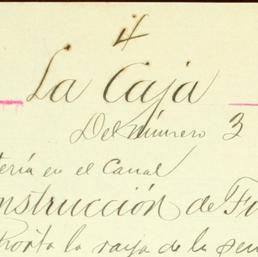 4
La Caja
Del número 3
tería en el Canal
nstrucción de Fu
Corta la raya de la pen